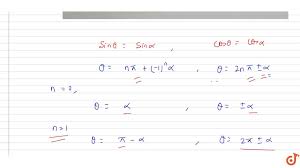 Sinθ = Sinα , Cosθ = Cosα
θ = nπ + (-1)ⁿ α , θ = 2nπ ± α
n = 2,
θ = α , θ = ±α
n=1
θ = π - α , θ = 2π ± α